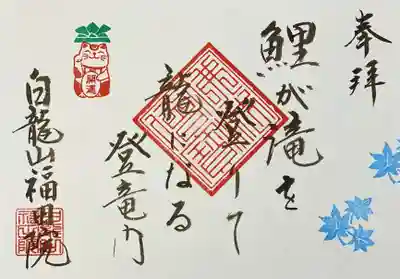 奉拝
鯉が滝を
登りて
龍になる
登竜門
白龍山福興院
開運